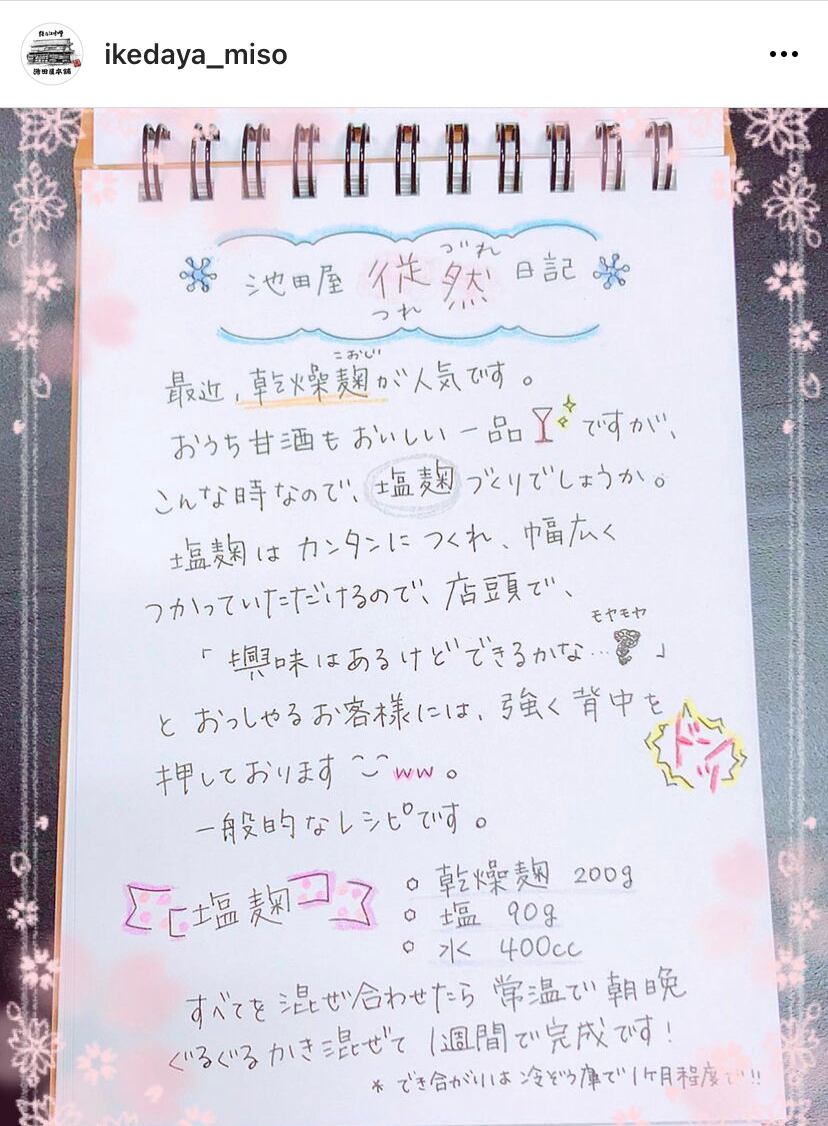 ikedaya_miso
池田屋本舗
づれ
池田屋 徒然 日記
つれ
こおじ
最近、乾燥麹が人気です。
おうち甘酒もおいしい一品ですが、
こんな時なので、塩麹づくりでしょうか。
塩麹はカンタンにつくれ、幅広く
つかっていただけるので、店頭で、
モヤモヤ
「興味はあるけどできるかな…」
とおっしゃるお客様には、強く背中を
ドーン
押しております ww。
一般的なレシピです。
塩麹
○ 乾燥麹 200g
○ 塩 90g
○ 水 400cc
すべてを混ぜ合わせたら常温で朝晩
ぐるぐるかき混ぜて1週間で完成です!
* でき合がりは冷ぞう庫で1ヶ月程度で!!